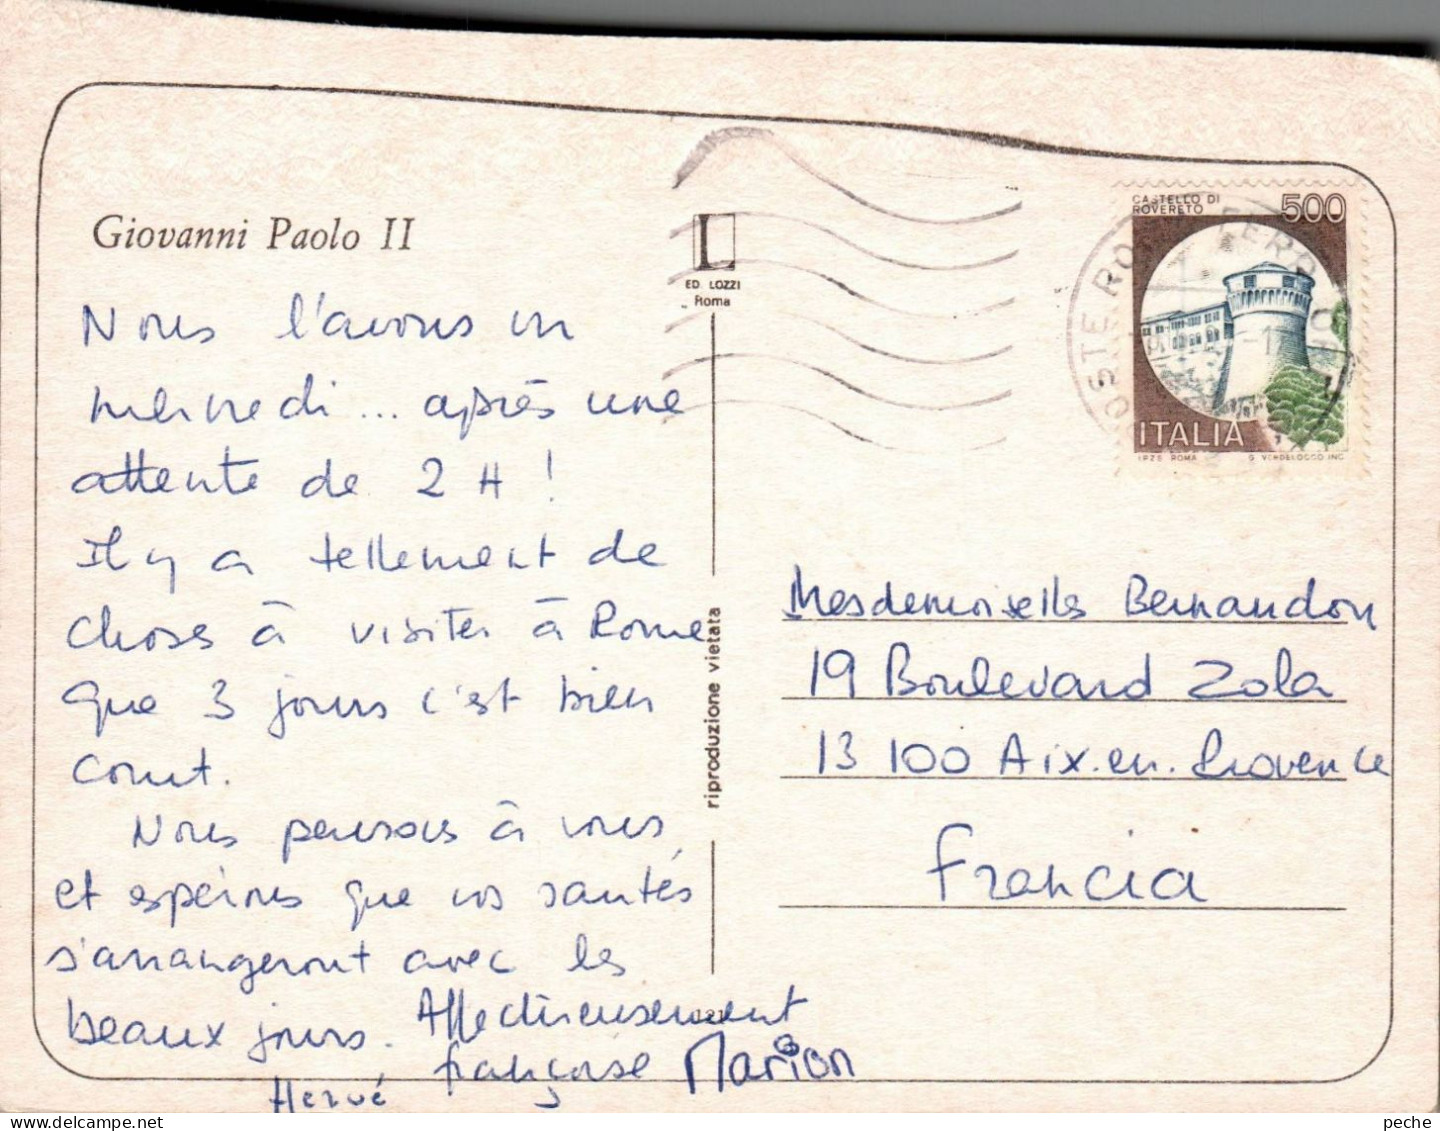 Giovanni Paolo II
L
ED. LOZZI
Roma
Nous l'avons vu
mercredi... après une
attente de 2 H !
Il y a tellement de
choses à visiter à Rome
que 3 jours c'est bien
court.
Nous pensons à vous,
et espérons que vos santés
s'arrangeront avec les
beaux jours. Affectueusement
Françoise Marion
Hervé
riproduzione vietata
CASTELLO DI
ROVERETO
500
ITALIA
I.P.Z.S. ROMA
G. VERDELOCCO INC.
Mesdemoiselles Bernandon
19 Boulevard Zola
13 100 Aix.en.Provence
Francia
peche